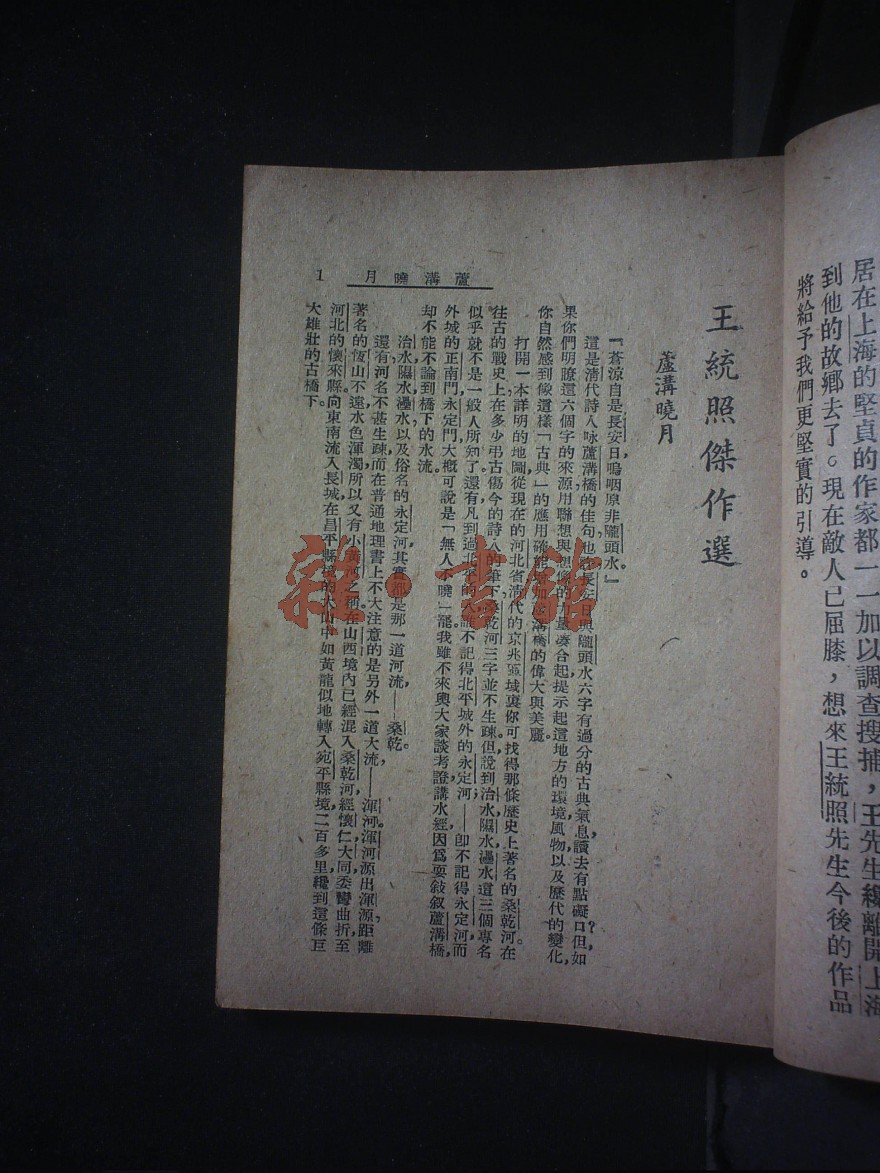 居在上海的堅貞的作家都一一加以調查搜捕，王先生纔離開上海
到他的故鄉去了。現在敵人已屈膝，想來王統照先生今後的作品
將給予我們更堅實的引導。
王統照傑作選
蘆溝曉月
『蒼涼自是長安日，嗚咽原非隴頭水。』
這是清代詩人咏蘆溝橋的佳句，也許，長安日與隴頭水六字有過分的古典氣息，讀去有點礙口？但，如
果你們明瞭這六個字的來源，用聯想與想像的力量湊合起，提示起這地方的環境，風物，以及歷代的變化，
你自然感到像這樣「古典」的應用確能增加蘆溝橋的偉大與美麗。
打開一本詳明的地圖，從現在的河北省，清代的京兆區域裏你可找得那條歷史上著名的桑乾河。在
往古的戰史上，在多少弔古傷今的詩人的筆下，桑乾河三字並不生疎。但，說到治水，㶟水，灅水這三個專名
似乎就不是一般人所知了。還有，凡到過北平的人，誰不記得北平城外的永定河；——卽不記得永定河，而
外城的正南門，永定門，大概可說是「無人不曉」罷。我雖不來與大家談考證，講水經，因爲要敍敍蘆溝橋，
却不能不論到橋下的水流。
治水，㶟水，灅水，以及俗名的永定河，其實都是那一道河流，——桑乾。
還有，河名不甚生疎，而在普通地理書上不大注意的是另外一道大流，——渾河。渾河源出渾源，距離
著名的恆山不遠，水色渾濁，所以又有小黃河之稱。在山西境內已經混入桑乾河，經懷仁，大同，委彎曲折，至
河北的懷來縣。向東南流入長城，在昌平縣境的大山中如黃龍似地轉入宛平縣境，二百多里，纔到這條巨
大雄壯的古橋下。
蘆溝曉月
1
雜·書館